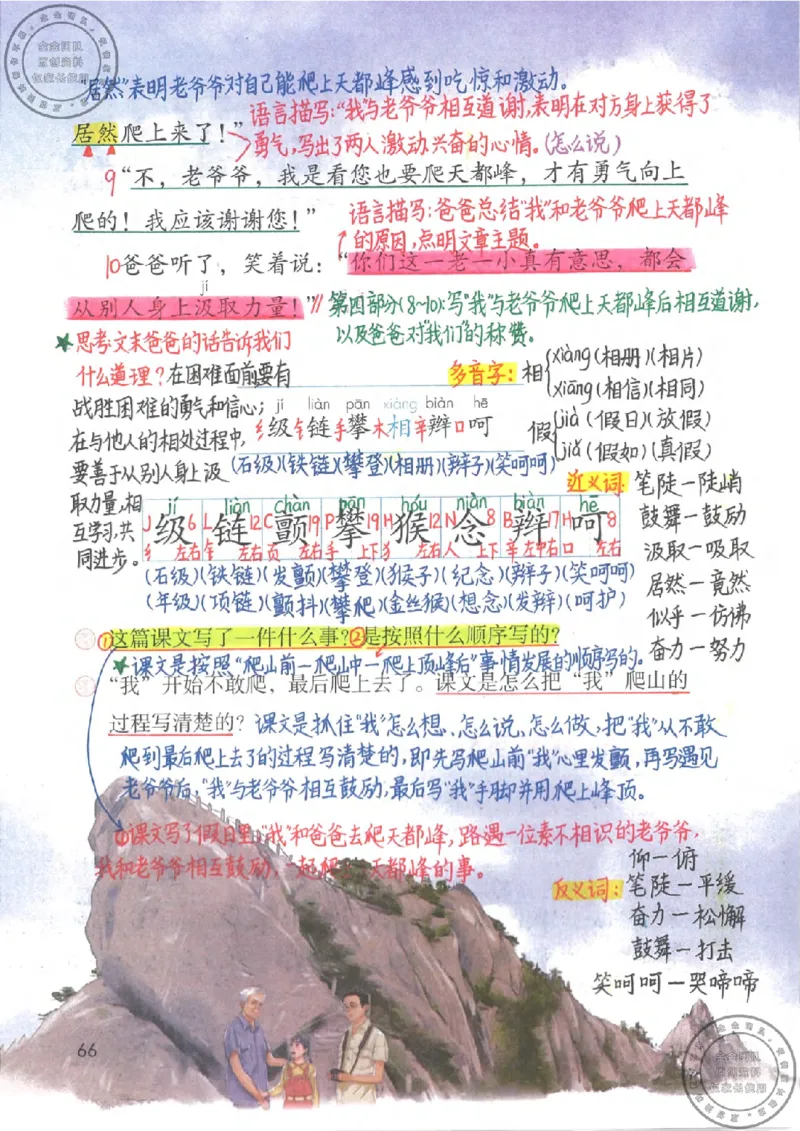 "居然"表明老爷爷对自己能爬上天都峰感到吃惊和激动。
语言描写:"我"与老爷爷相互道谢,表明在对方身上获得了
居然爬上来了!"
勇气,写出了两人激动、兴奋的心情。(怎么说)
9"不,老爷爷,我是看您也要爬天都峰,才有勇气向上
爬的!我应该谢谢您!"
语言描写:爸爸总结"我"和老爷爷爬上天都峰
的原因,点明文章主题。
10爸爸听了,笑着说:"你们这一老一小真有意思,都会
jí
从别人身上汲取力量!"
第四部分(8~10):写"我"与老爷爷爬上天都峰后相互道谢,
以及爸爸对"我们"的称赞。
★思考:文末爸爸的话告诉我们
什么道理?在困难面前要有
战胜困难的勇气和信心;
在与他人的相处过程中,
要善于从别人身上汲
取力量,相
互学习,共
同进步。
多音字:相
xiàng(相册)(相片)
xiāng(相信)(相同)
假
jià(假日)(放假)
jiǎ(假如)(真假)
jí liàn pān xiàng biàn hē
纟级钅链手攀木相辛辫口呵
(石级)(铁链)(攀登)(相册)(辫子)(笑呵呵)
jí liàn chàn pān hóu niàn biàn hē
J级6 L链12 C颤19 P攀19 H猴12 N念8 B辫17 H呵8
纟 左右 钅 左右 页 左右 手 上下 犭 左右 人 上下 辛 左中右 口 左右
(石级)(铁链)(发颤)(攀登)(猴子)(纪念)(辫子)(笑呵呵)
(年级)(项链)(颤抖)(攀爬)(金丝猴)(想念)(发辫)(呵护)
近义词:笔陡—陡峭
鼓舞—鼓励
汲取—吸取
居然—竟然
似乎—仿佛
奋力—努力
①这篇课文写了一件什么事?②是按照什么顺序写的?
★课文是按照"爬山前—爬山中—爬上顶峰后"事情发展的顺序写的。
"我"开始不敢爬,最后爬上去了。课文是怎么把"我"爬山的
过程写清楚的?
课文是抓住"我"怎么想、怎么说、怎么做,把"我"从不敢
爬到最后爬上去了的过程写清楚的,即先写爬山前"我"心里发颤,再写遇见
老爷爷后,"我"与老爷爷相互鼓励,最后写"我"手脚并用爬上峰顶。
①课文写了假日里,"我"和爸爸去爬天都峰,路遇一位素不相识的老爷爷,
我和老爷爷相互鼓励,一起爬上天都峰的事。
反义词:
仰—俯
笔陡—平缓
奋力—松懈
鼓舞—打击
笑呵呵—哭啼啼
66